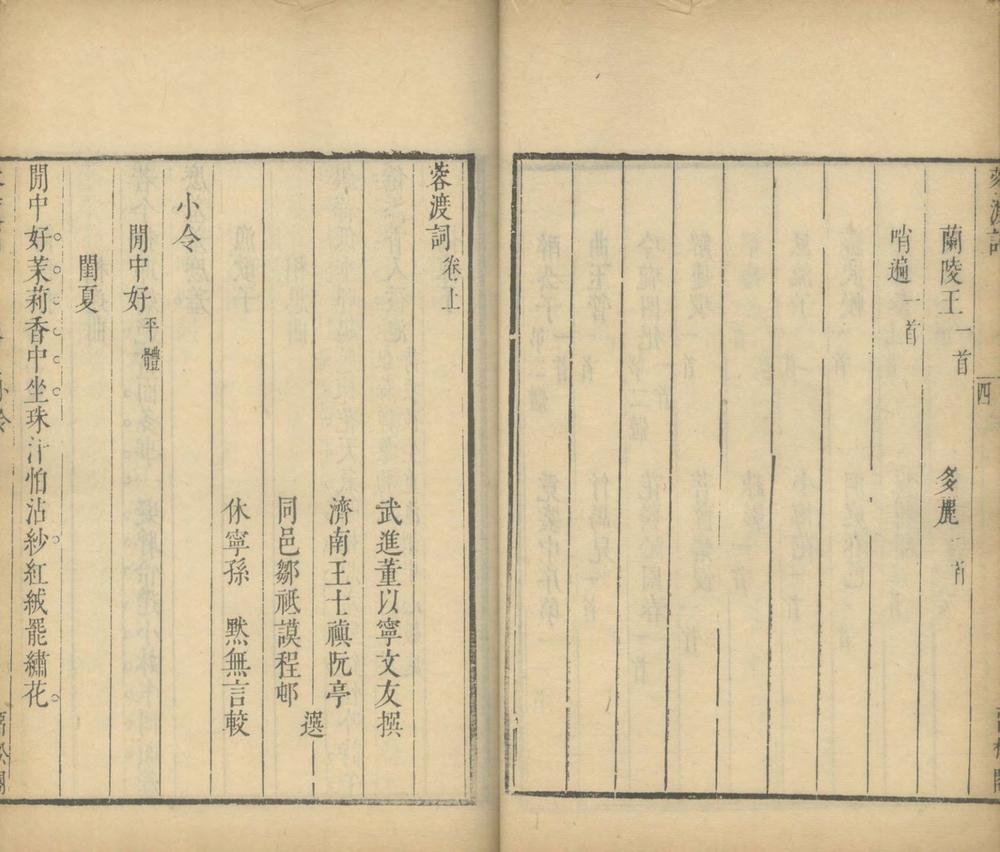 蓉渡詞
四
蘭陵王一首　多麗一首
哨遍一首
蓉渡詞卷上
武進董以寧文友撰
濟南王士禛阮亭
選
同邑鄒祗謨程邨
休寧孫　默無言較
小令
閒中好平體
閨夏
閒中好。茉莉香中坐。珠汗怕沾紗。紅絨罷繡花。
小令